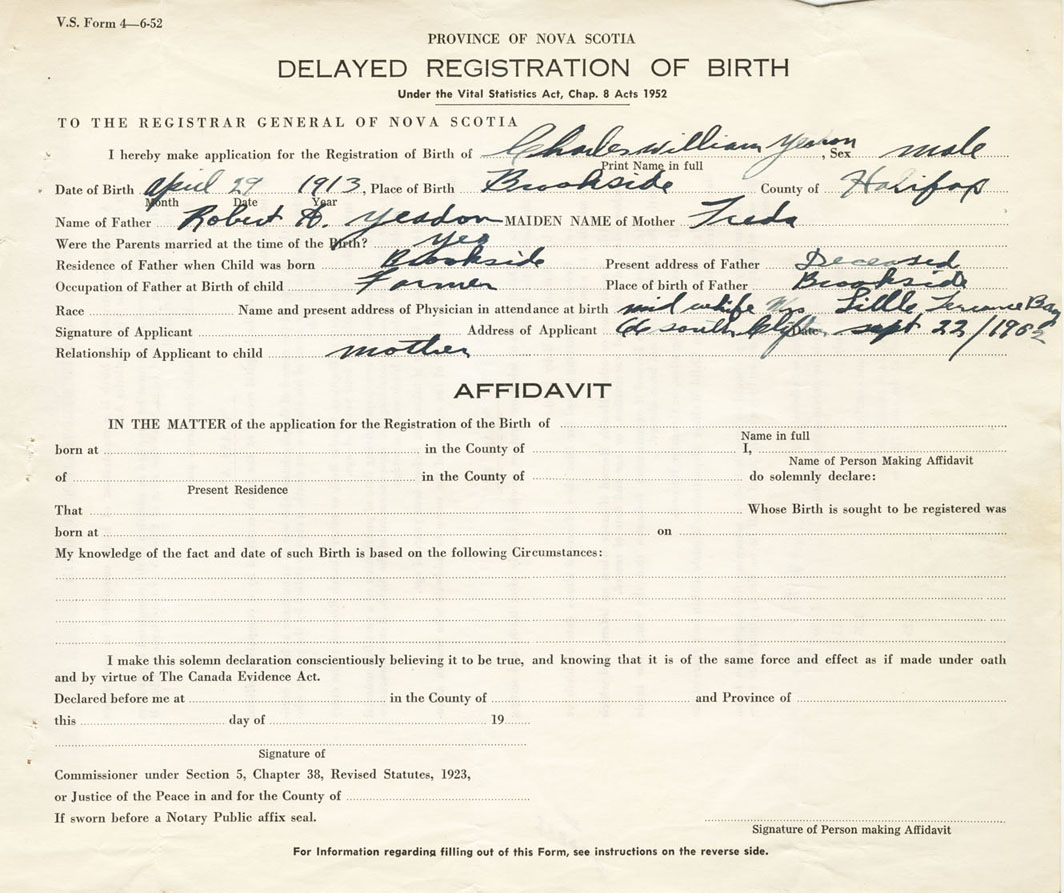 V.S. Form 4—6-52
PROVINCE OF NOVA SCOTIA
DELAYED REGISTRATION OF BIRTH
Under the Vital Statistics Act, Chap. 8 Acts 1952
TO THE REGISTRAR GENERAL OF NOVA SCOTIA
I hereby make application for the Registration of Birth of Charles william , Sex male
Print Name in full
Date of Birth April 29 1913, Place of Birth Brookside County of Halifax
Month Date Year
Name of Father Robert A. Yeadon MAIDEN NAME of Mother Freda
Were the Parents married at the time of the Birth? yes
Residence of Father when Child was born Brookside Present address of Father Deceased
Occupation of Father at Birth of child Farmer Place of birth of Father Brookside
Race Name and present address of Physician in attendance at birth mid whife Little Bay
Signature of Applicant Address of Applicant south Date sept 22/1962
Relationship of Applicant to child mother
AFFIDAVIT
IN THE MATTER of the application for the Registration of the Birth of
Name in full
born at in the County of I,
Name of Person Making Affidavit
of in the County of do solemnly declare:
Present Residence
That Whose Birth is sought to be registered was
born at on
My knowledge of the fact and date of such Birth is based on the following Circumstances:
I make this solemn declaration conscientiously believing it to be true, and knowing that it is of the same force and effect as if made under oath
and by virtue of The Canada Evidence Act.
Declared before me at in the County of and Province of
this day of 19
Signature of
Commissioner under Section 5, Chapter 38, Revised Statutes, 1923,
or Justice of the Peace in and for the County of
If sworn before a Notary Public affix seal.
Signature of Person making Affidavit
For Information regarding filling out of this Form, see instructions on the reverse side.